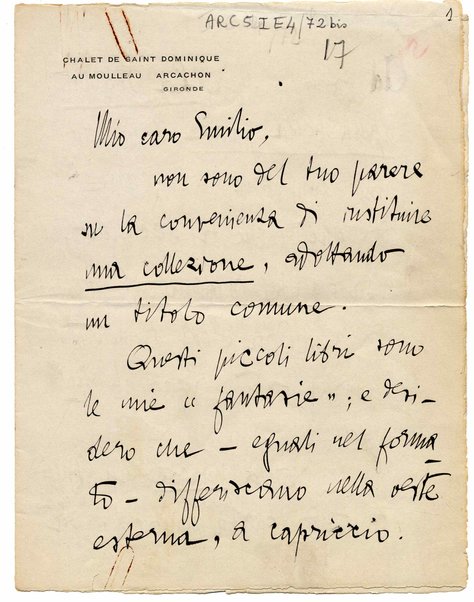 ARC5IE4/72bis
1
17
CHALET DE SAINT DOMINIQUE
AU MOULLEAU ARCACHON
GIRONDE
Mio caro Emilio,
non sono del tuo parere
su la convenienza di instituire
una collezione, adottando
un titolo comune.
Questi piccoli libri sono
le mie « fantasie »; e desi-
dero che – eguali nel forma-
to – differiscano nella veste
esterna, a capriccio.